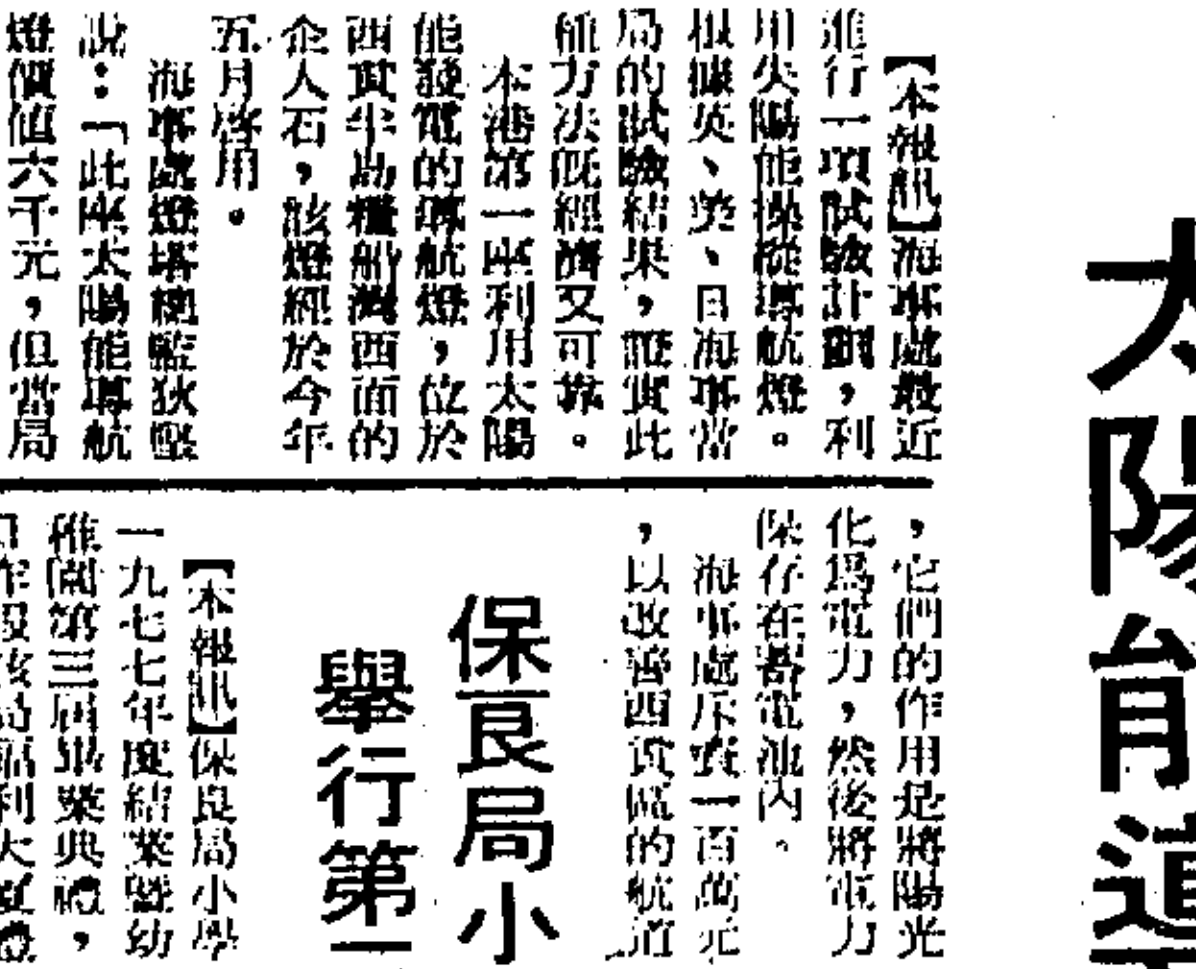 太陽能導
【本報訊】海事處最近
進行一項試驗計劃，利
用太陽能操縱導航燈。
根據英、美、日海事當
局的試驗結果，證實此
種方法既經濟又可靠。
本港第一座利用太陽
能發電的導航燈，位於
西貢半島糧船灣西面的
企人石，該燈經於今年
五月啓用。
海事處燈塔總監狄堅
說：「此座太陽能導航
燈價值六千元，但當局
，它們的作用是將陽光
化爲電力，然後將電力
保存在蓄電池內。
海事處斥資一百萬元
，以改善西貢區的航道
保良局小
舉行第
【本報訊】保良局小學
一九七七年度結業暨幼
稚園第三屆畢業典禮，
日昨假該局福利大廈禮